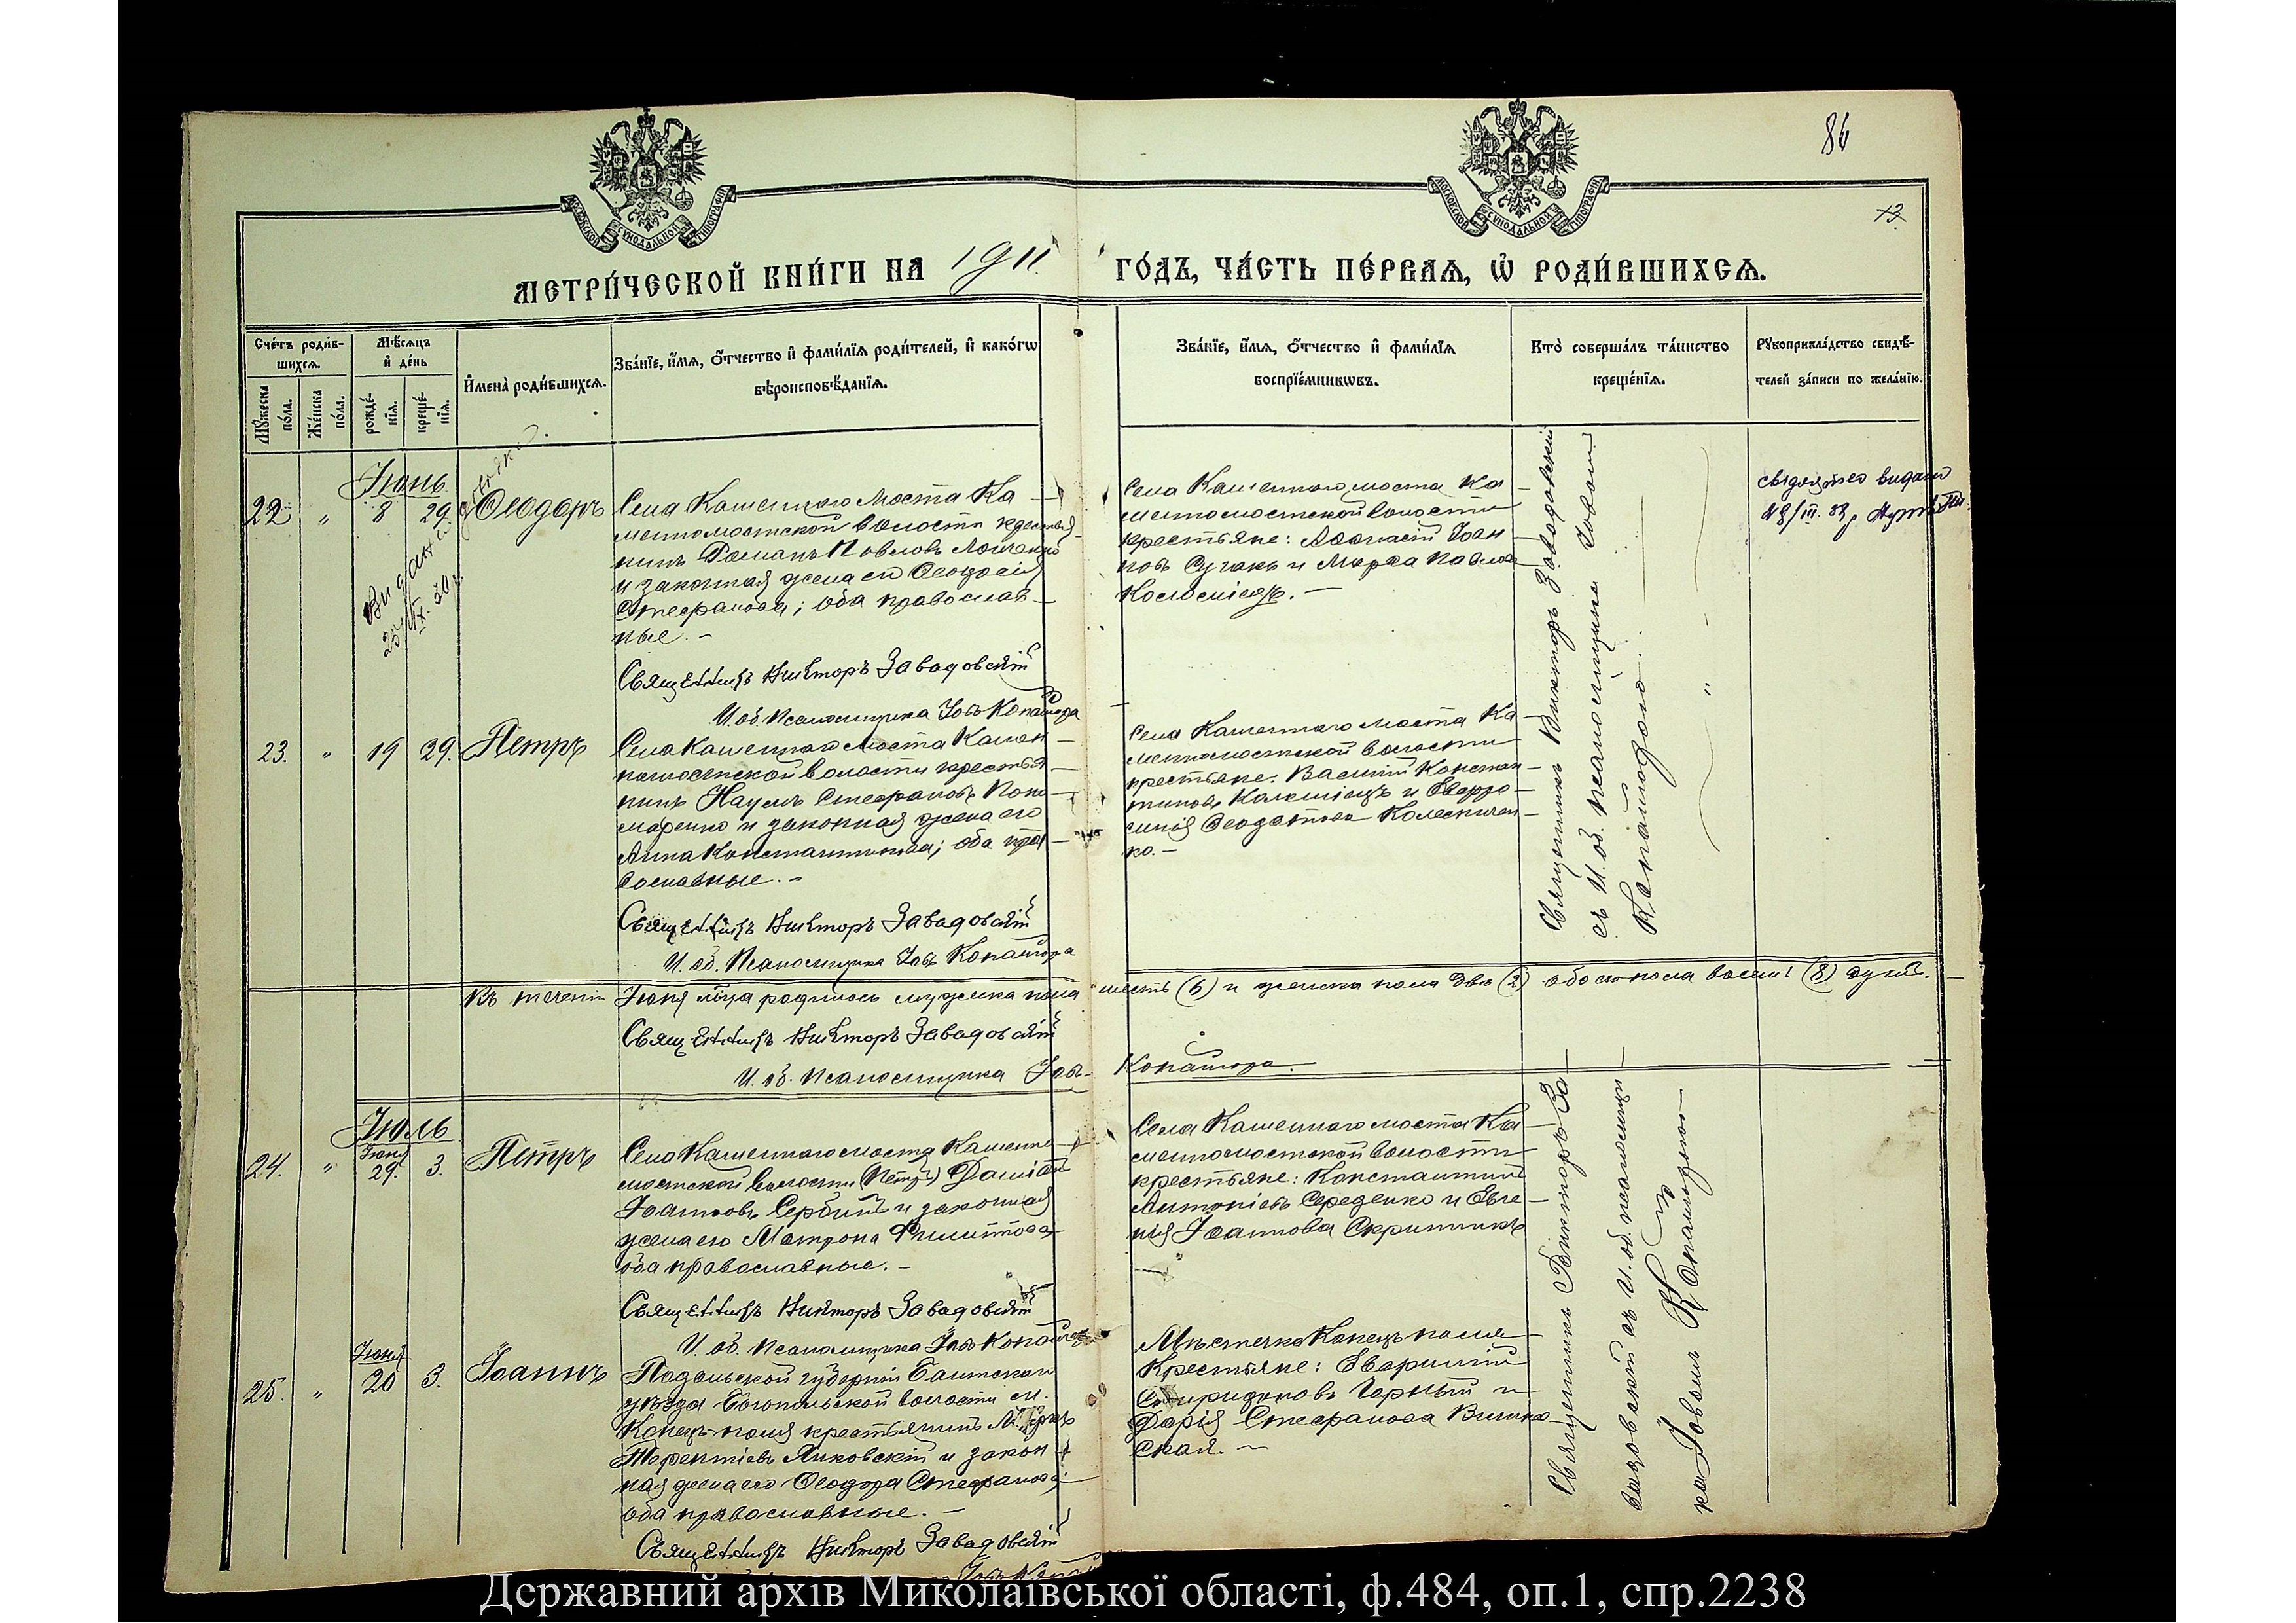 86
13.
МОСКОВСКОЙ СѴНОДАЛЬНОЙ ТИПОГРАФІИ
МОСКОВСКОЙ СѴНОДАЛЬНОЙ ТИПОГРАФІИ
МЕТРИ́ЧЕСКОЙ КНИ́ГИ НА 1911 ГО́ДЪ, ЧА́СТЬ ПЕ́РВАѦ, Ѡ҆ РОДИ́ВШИХСѦ.
Сче́тъ роди́в-
шихсѧ.
Мѹ́жеска по́ла.
Же́нска по́ла.
Мѣ́сѧцъ
и҆ де́нь
рожде́-нїѧ.
креще́-нїѧ.
И҆мена̀ роди́вшихсѧ.
Зва́нїе, и҆́мѧ, ѻ҆́тчество и҆ фами́лїѧ роди́телей, и҆ како́гѡ
вѣроисповѣ́данїѧ.
Зва́нїе, и҆́мѧ, ѻ҆́тчество и҆ фами́лїѧ
воспрїе́мникѡвъ.
Кто̀ соверша́лъ та́инство
креще́нїѧ.
Рѹкоприкла́дство свидѣ́-
телей за́писи по жела́нїю.
Іюнь
22. " 8 29. Ѳеодоръ
Села Каменнаго Моста Ка-
менномостской волости крестья-
нинъ Романъ Павловъ
и законная жена его Ѳеодосія
Стефанова; оба православ-
ные.-
Священникъ Викторъ Завадовскій
И. об. Псаломщика Іовъ Копайгора
Села Каменнаго моста Ка-
менномостской волости
крестьяне: Іоан-
новъ и Марѳа Павлова
Священникъ Викторъ Завадовскій
съ И. об. псаломщика Іовомъ
Копайгорою.
свидетво видано
Видана
IX. 30 г.
23. " 19 29. Петръ
Села Каменнаго Моста Камен-
номостской волости крестья-
нинъ Наумъ Стефановъ Поно-
маренко и законная жена его
Анна Константинова; оба пра-
вославные.-
Священникъ Викторъ Завадовскій
И. об. Псаломщика Іовъ Копайгора
Села Каменнаго моста Ка-
менномостской волости
крестьяне: Василій Констан-
тиновъ и Евфро-
синія Колесничен-
ко.-
Въ теченіи Іюня мѣсяца родилось мужеска пола шесть (6) и женска пола два (2) обоего пола восемь (8) душъ.
Священникъ Викторъ Завадовскій
И. об. Псаломщика Іовъ Копайгора.
Іюль
24. " Іюня 29. 3. Петръ
Села Каменнаго моста Каменно-
мостской волости Даміанъ
Іоанновъ и законная
жена его Матрона Филиппова
оба православные.-
Священникъ Викторъ Завадовскій
И. об. Псаломщика Іовъ Копайгора
Села Каменнаго моста Ка-
менномостской волости
крестьяне: Константинъ
Антоніевъ Середенко и Евге-
нія Іоаннова Скрипникъ
Священникъ Викторъ За-
вадовскій съ И. об. псаломщи-
ка Іовомъ Копайгорою
25. " Іюня 20 3. Іоаннъ
Подольской губерніи Балтскаго
уѣзда Богопольской волости м.
Конецъ-поля крестьянинъ
Терентіевъ Янковскій и закон-
ная жена его Ѳеодора Стефанова;
оба православные.-
Священникъ Викторъ Завадовскій
Мѣстечка Конецъ поля
Крестьяне:
Спиридоновъ Чорный и
Дарія Стефанова
Державний архів Миколаївської області, ф.484, оп.1, спр.2238